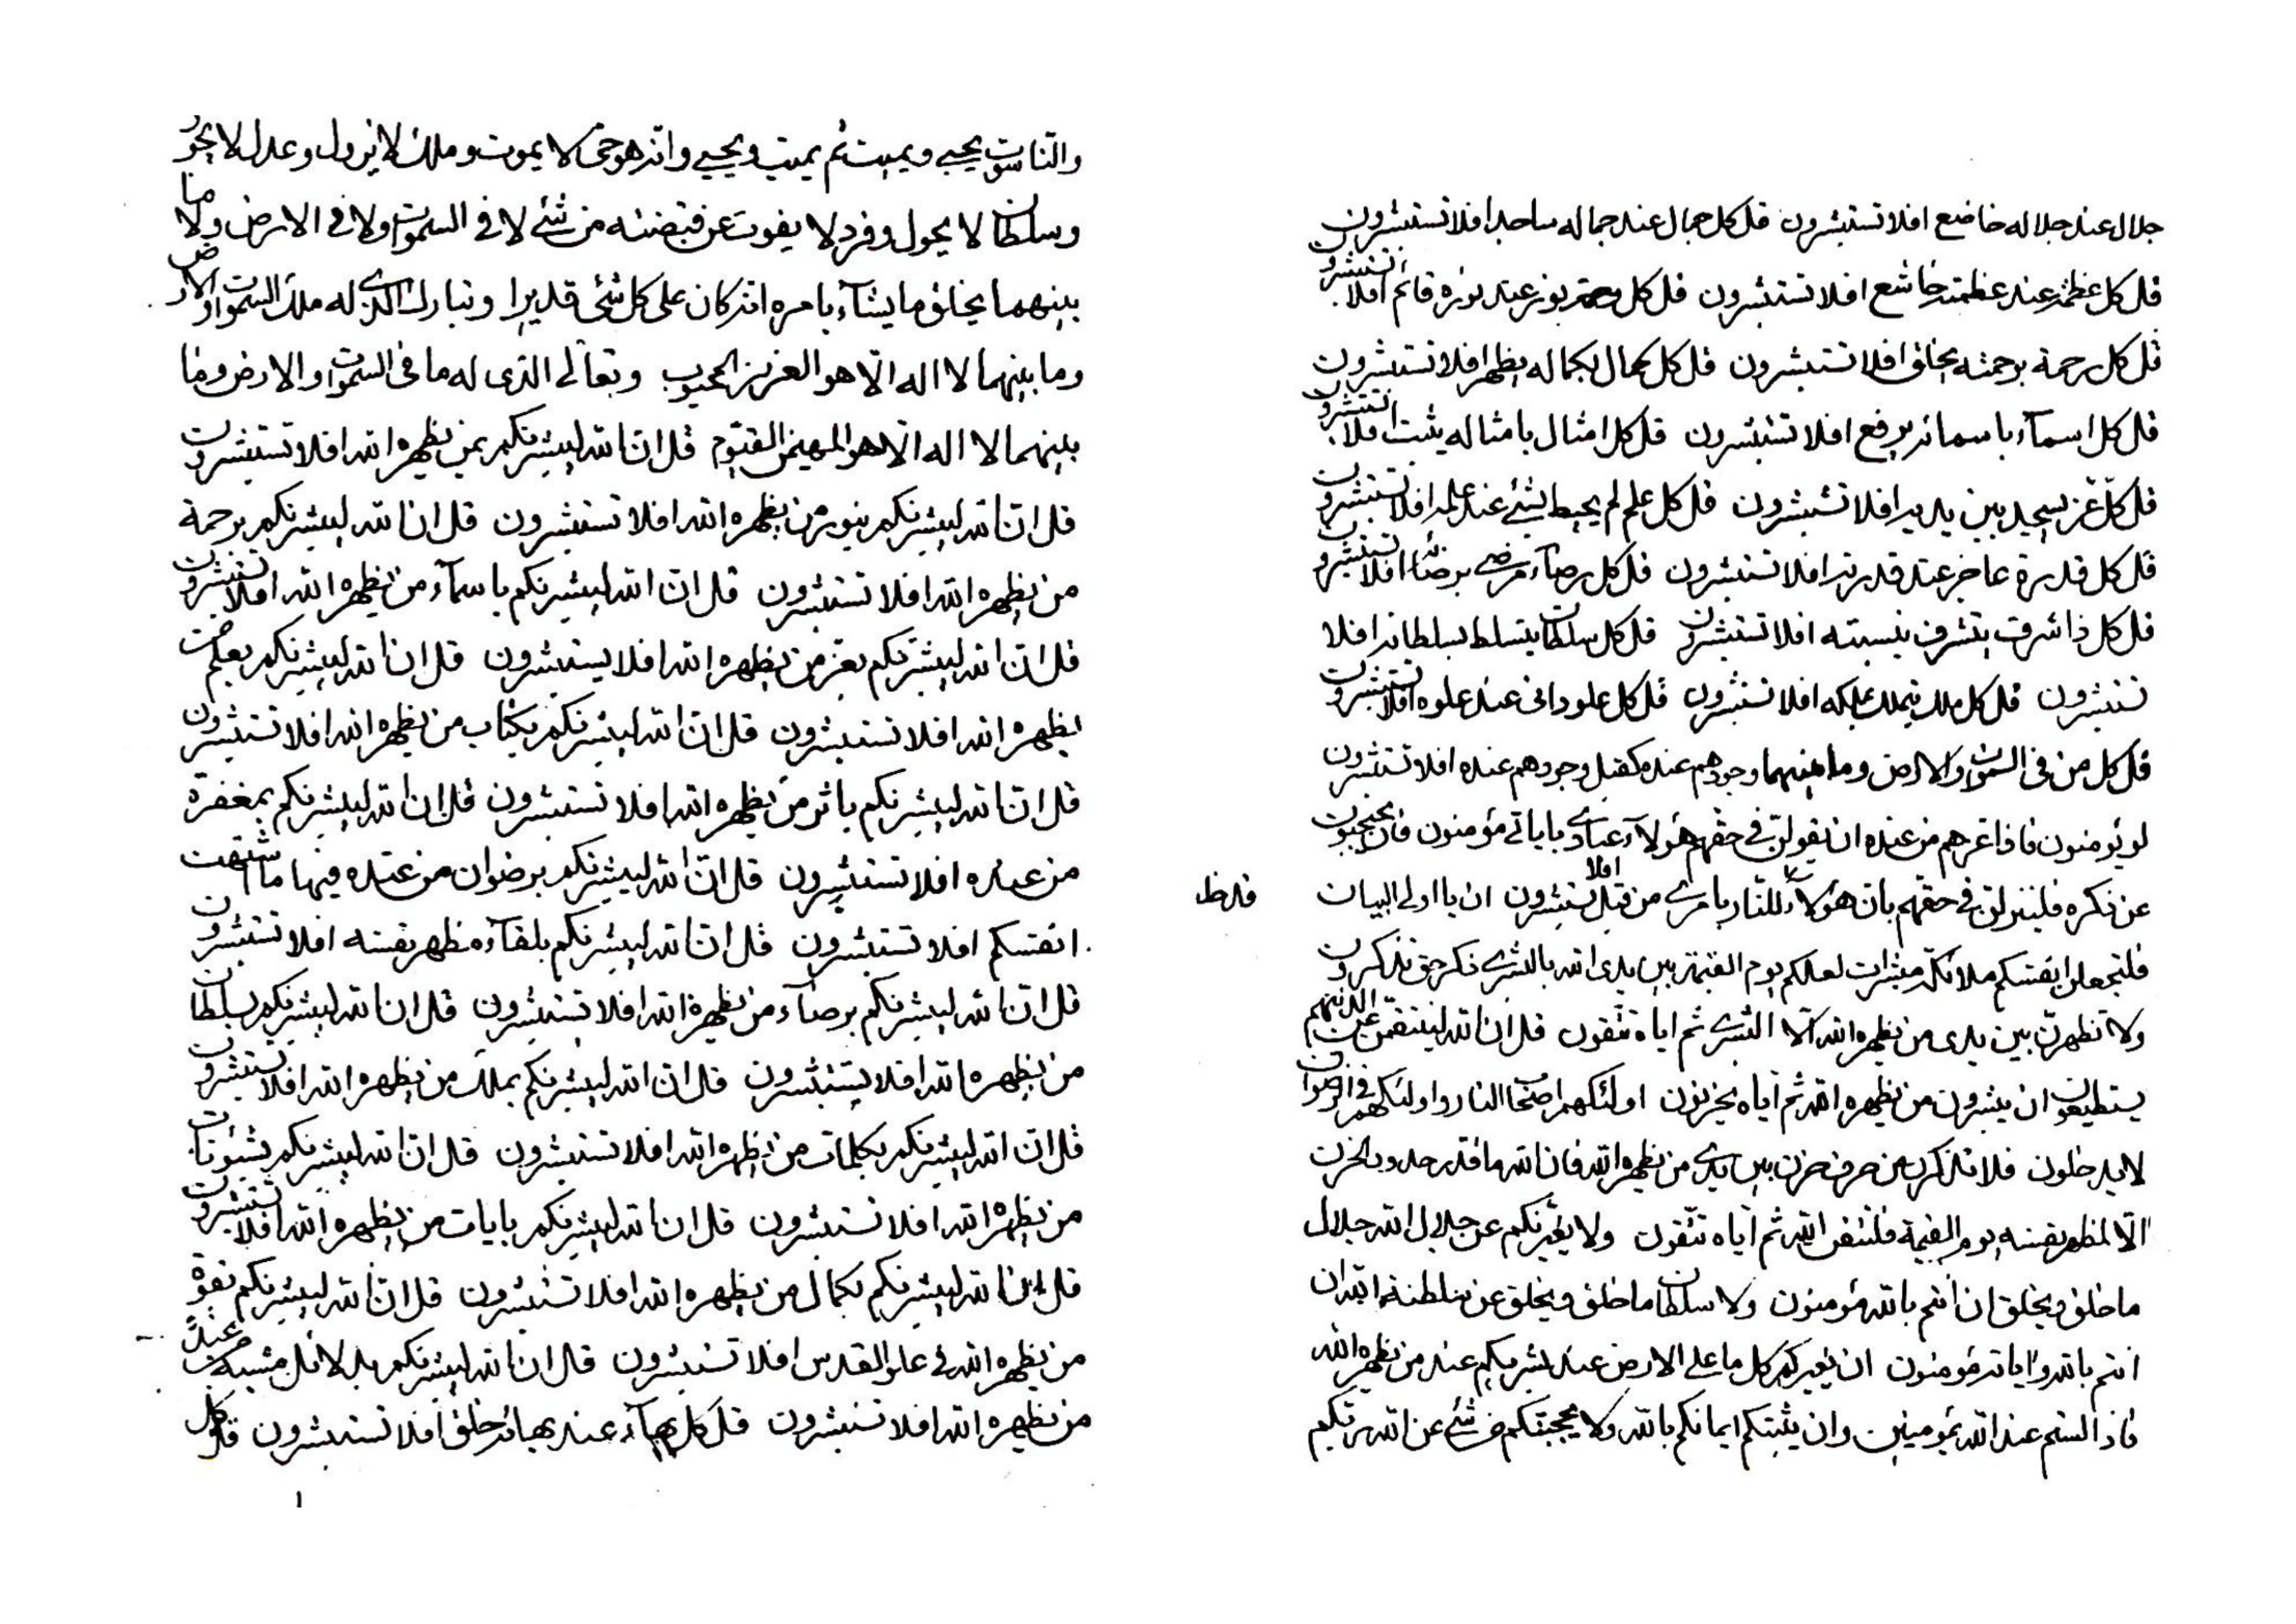 والناسوت يحيي ويميت ثم يميت ويحيي وانه هو حي لا يموت وملك لا يزول وعدل لا يجور
وسلطان لا يحول وفرد لا يفوت عن قبضته من شئ لا في السموات ولا في الارض ولا ما
بينهما يخلق ما يشآء بامره انه كان على كل شئ قديرا وتبارك الذي له ملك السموات والارض
وما بينهما لا اله الا هو العزيز المحبوب وتعالى الذي له ما في السموات والارض وما
بينهما لا اله الا هو المهيمن القيوم قل ان الله ليبشرنكم بمن يظهره الله افلا تستبشرون
قل ان الله ليبشرنكم بنور من يظهره الله افلا تستبشرون قل ان الله ليبشرنكم برحمة
من يظهره الله افلا تستبشرون قل ان الله ليبشرنكم باسمآء من يظهره الله افلا تستبشرون
قل ان الله ليبشرنكم بعز من يظهره الله افلا يستبشرون قل ان الله ليبشرنكم بعلم من
يظهره الله افلا تستبشرون قل ان الله ليبشرنكم بكتاب من يظهره الله افلا تستبشرون
قل ان الله ليبشرنكم باثر من يظهره الله افلا تستبشرون قل ان الله ليبشرنكم بمغفرة
من عنده افلا تستبشرون قل ان الله ليبشرنكم برضوان من عنده فيها ما اشتهت
انفسكم افلا تستبشرون قل ان الله ليبشرنكم بلقآء مظهر نفسه افلا تستبشرون
قل ان الله ليبشرنكم برضآء من يظهره الله افلا تستبشرون قل ان الله ليبشرنكم بسلطان
من يظهره الله افلا يستبشرون قل ان الله ليبشرنكم بملك من يظهره الله افلا تستبشرون
قل ان الله ليبشرنكم بكلمات من يظهره الله افلا تستبشرون قل ان الله ليبشرنكم بشئونات
من يظهره الله افلا تستبشرون قل ان الله ليبشرنكم بايات من يظهره الله افلا تستبشرون
قل ان الله ليبشرنكم بكمال من يظهره الله افلا تستبشرون قل ان الله ليبشرنكم بقوة
من يظهره الله في علو القدس افلا تستبشرون قل ان الله ليبشرنكم بدلائل مثبتة من عند
من يظهره الله افلا تستبشرون قل كل بهآء عند بهائه خلق افلا تستبشرون قل كل
١
جلال عند جلاله خاضع افلا تستبشرون قل كل جمال عند جماله ساجد افلا تستبشرون
قل كل عظمة عند عظمته خاشع افلا تستبشرون قل كل نور عند نوره قائم افلا تستبشرون
قل كل رحمة برحمته يخلق افلا تستبشرون قل كل كمال بكماله يظهر افلا تستبشرون
قل كل اسمآء باسمائه يرفع افلا تستبشرون قل كل امثال بامثاله يثبت افلا تستبشرون
قل كل عز يسجد بين يديه افلا تستبشرون قل كل علم لم يحيط بشئ عند علمه افلا تستبشرون
قل كل قدرة عاجز عند قدرته افلا تستبشرون قل كل رضآء مرضي برضائه افلا تستبشرون
قل كل ذا شرف يتشرف بنسبته افلا تستبشرون قل كل سلطان يتسلط بسلطانه افلا
تستبشرون قل كل ملك يتملك بملكه افلا تستبشرون قل كل علو داني عند علوه افلا تستبشرون
قل كل من في السموات والارض وما بينهما وجودهم عنده كقبل وجودهم عنده افلا تستبشرون
لو يؤمنون فاذا عزهم من عنده ان يقولن في حقهم هؤلآء عبادي باياتي مؤمنون فان يحتجبون
عن ذكره فلينزلن في حقهم بان هؤلآء للنار بامري من قبل افلا تستبشرون ان يا اولي البيان
فلتجعلن انفسكم ملائكة مبشرات لعلكم يوم القيمة بين يدي الله بالبشرى ذكر حق تذكرون
ولا تظهرن بين يدي من يظهره الله الا البشرى ثم اياه تتقون قل ان الله لينتقمن عن الذينهم
يستطيعون ان يبشرون من يظهره الله ثم اياه يحزنون اولئك هم اصحاب النار واولئك هم في الرضوان
لا يدخلون فلا تذكرن من حرف حزن بين يدي من يظهره الله فان الله ما قدر حدود الحزن
الا لمظهر نفسه يوم القيمة فلتتقن الله ثم اياه تتقون ولا يغرنكم عن جلال الله جلال
ما خلق ويخلق ان انتم بالله مؤمنون ولا سلطان ما خلق ويخلق عن سلطنة الله ان
انتم بالله واياته مؤمنون ان يعزكم كل ما على الارض عند من يظهره الله
فاذا لستم عند الله بمؤمنين وان يثبتكم ايمانكم بالله ولا يحجبنكم من شئ عن الله ربكم